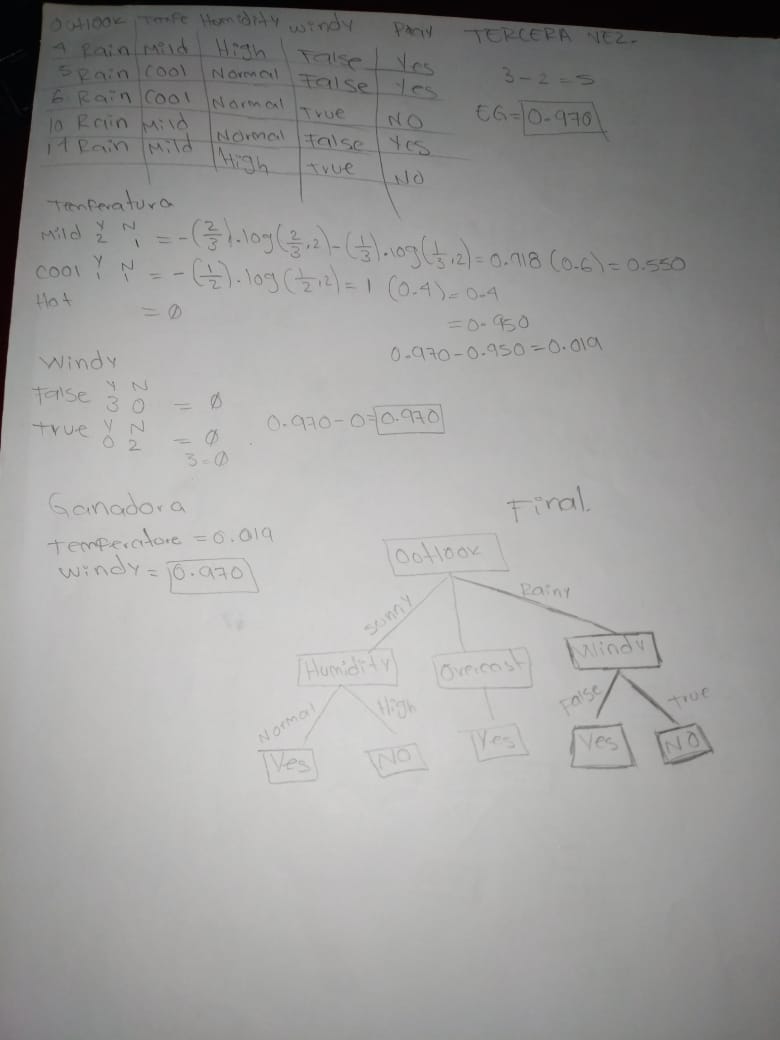 Outlook Tempe Humidity windy Party TERCERA VEZ.
4 Rain Mild High False Yes
5 Rain Cool Normal False Yes
6 Rain Cool Normal True NO
10 Rain Mild Normal False Yes
14 Rain Mild High True NO
3-2=5
EG=0.970
Temperatura
Y N
Mild 2 1 = -(2/3).log(2/3,2)-(1/3).log(1/3,2)=0.918(0.6)=0.550
Y N
Cool 1 1 = -(1/2).log(1/2,2)=1 (0.4)=0.4
Hot = Ø
=0.950
0.970-0.950=0.019
Windy
Y N
False 3 0 = Ø
Y N
True 0 2 = Ø
3=Ø
0.970-0=0.970
Ganadora
temperature =0.019
windy= 0.970
Final.
Ootlook
Sunny
Rainy
Humidity
Overcast
Windy
Normal
High
False
True
Yes
NO
Yes
Yes
NO